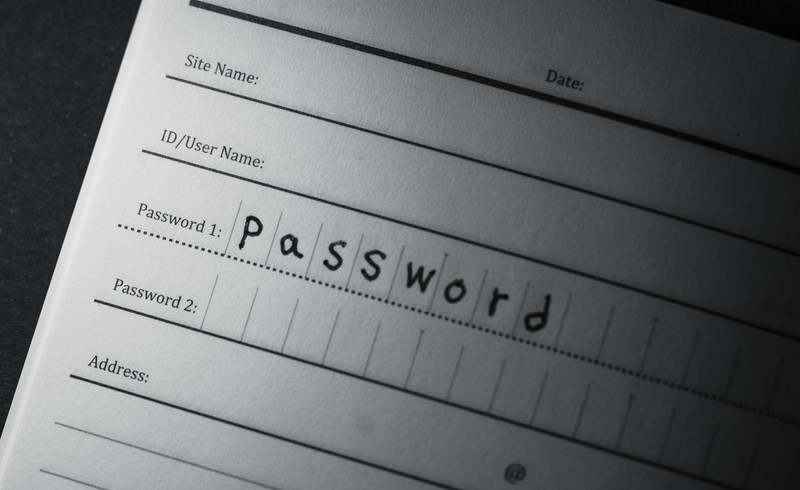 Date:
Site Name:
ID/User Name:
Password 1: Password
Password 2:
Address:
@